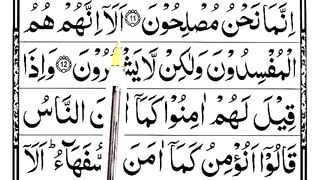 اِنَّمَا نَحْنُ مُصْلِحُوْنَ ۝۱۱ اَلَاۤ اِنَّهُمْ هُمُ
الْمُفْسِدُوْنَ وَلٰكِنْ لَّا يَشْعُرُوْنَ ۝۱۲ وَاِذَا
قِيْلَ لَهُمْ اٰمِنُوْا كَمَاۤ النَّاسُ
قَالُوْۤا اَنُؤْمِنُ كَمَاۤ اٰمَنَ السُّفَهَآءُ ؕ اَلَاۤ